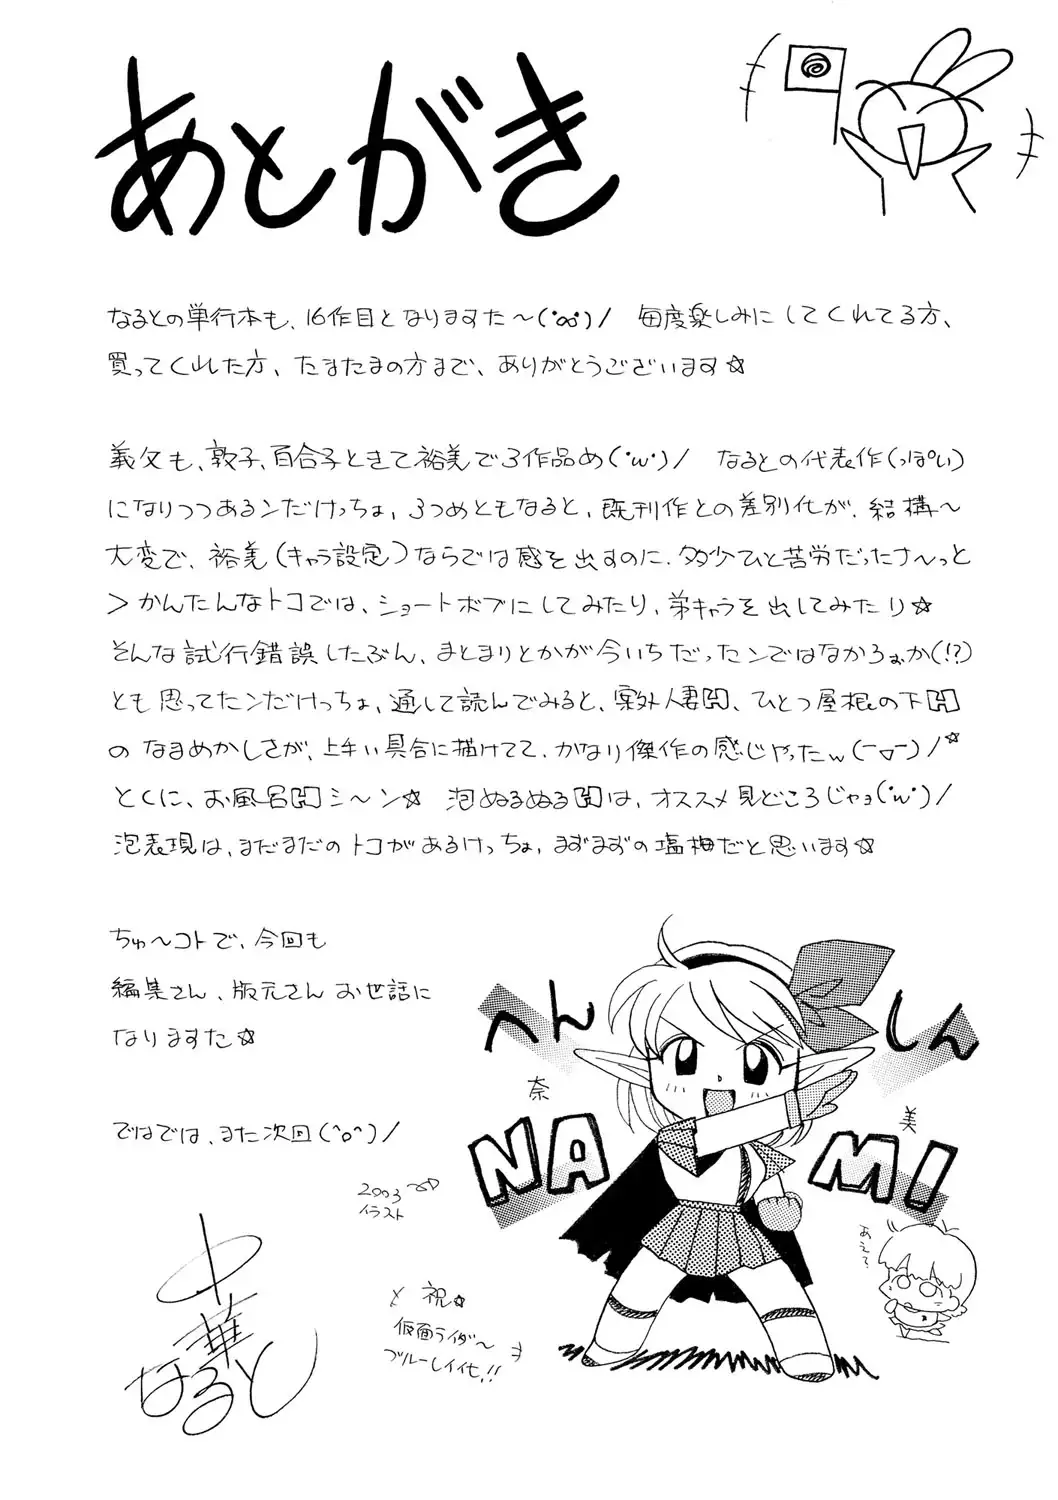 あとがき
なるとの単行本も、16作目となりますた～(°∞°)/　毎度楽しみにしてくれてる方、
買ってくれた方、たまたまの方まで、ありがとうございます☆
義父も、敦子、百合子ときて裕美で3作品め(°w°)/　なるとの代表作(っぽい)
になりつつあるンだけっちょ、3つめともなると、既刊作との差別化が、結構～
大変で、裕美(キャラ設定)ならでは感を出すのに、多少ひと苦労だったナ～っと
＞かんたんなトコでは、ショートボブにしてみたり、弟キャラを出してみたり☆
そんな試行錯誤したぶん、まとまりとかが今いちだったンではなかろぉか(!?)
とも思ってたンだけっちょ、通して読んでみると、案外人妻H、ひとつ屋根の下H
のなまめかしさが、上手い具合に描けてて、かなり傑作の感じやったw(￣▽￣)/*
とくに、お風呂Hシ～ン☆　泡ぬるぬるHは、オススメ見どころじゃョ(°w°)/
泡表現は、まだまだのトコがあるけっちょ、まずまずの塩梅だと思います☆
ちゅ～コトで、今回も
編集さん、版元さんお世話に
なりますた☆
ではでは、また次回(^o^)/
へんしん
奈美
NAMI
あえて?
2003
イラスト
と 祝☆
仮面ライダ～
ブルーレイ化!!
中華
なると